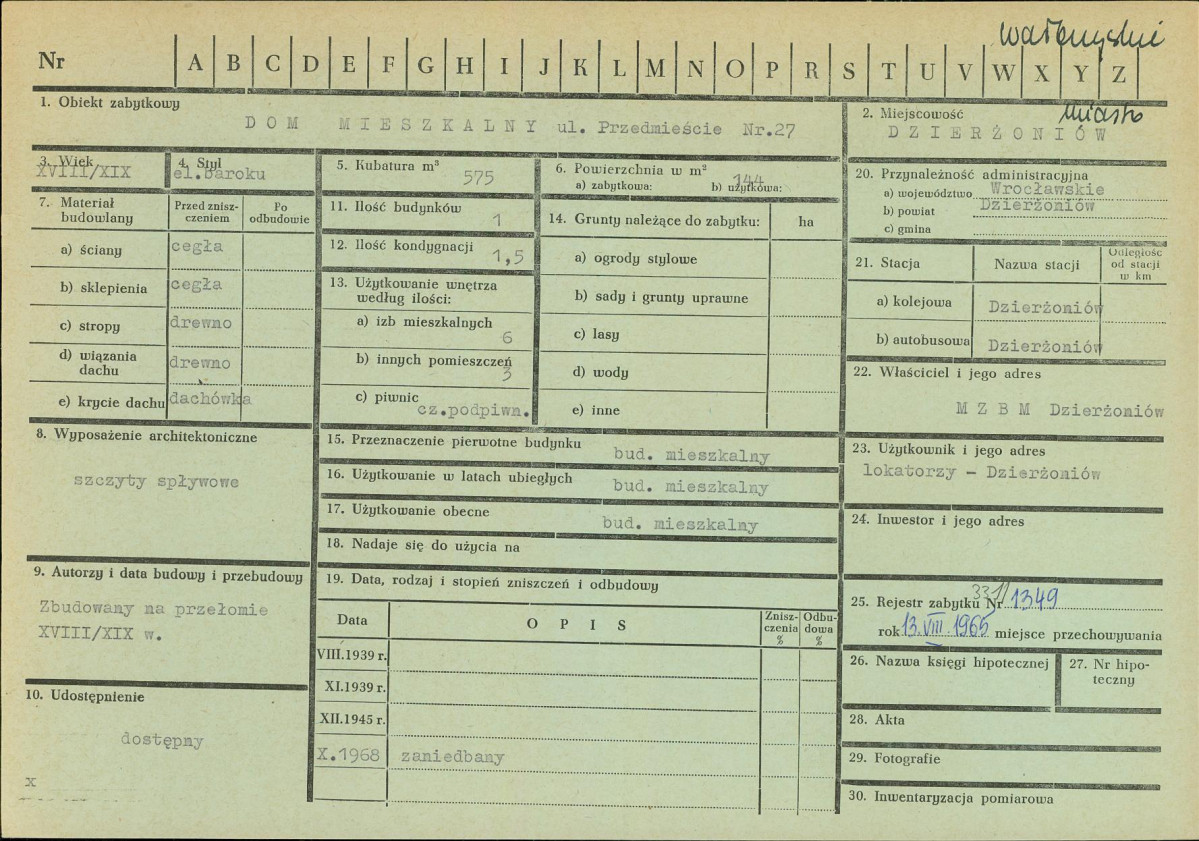 wałbrzyskie
Nr A B C D E F G H I J K L M N O P R S T U V W X Y Z
1. Obiekt zabytkowy
DOM MIESZKALNY ul. Przedmieście Nr.27
2. Miejscowość
miasto
DZIERŻONIÓW
3. Wiek
XVIII/XIX
4. Styl
el.Baroku
5. Kubatura m³
575
6. Powierzchnia w m²
a) zabytkowa: b) użytkowa:
144
7. Materiał budowlany
Przed zniszczeniem
Po odbudowie
a) ściany cegła
b) sklepienia cegła
c) stropy drewno
d) wiązania dachu drewno
e) krycie dachu dachówka
8. Wyposażenie architektoniczne
szczyty spływowe
9. Autorzy i data budowy i przebudowy
Zbudowany na przełomie
XVIII/XIX w.
10. Udostępnienie
dostępny
x
11. Ilość budynków
1
12. Ilość kondygnacji
1,5
13. Użytkowanie wnętrza
według ilości:
a) izb mieszkalnych
6
b) innych pomieszczeń
3
c) piwnic
cz.podpiwn.
14. Grunty należące do zabytku: ha
a) ogrody stylowe
b) sady i grunty uprawne
c) lasy
d) wody
e) inne
15. Przeznaczenie pierwotne budynku
bud. mieszkalny
16. Użytkowanie w latach ubiegłych
bud. mieszkalny
17. Użytkowanie obecne
bud. mieszkalny
18. Nadaje się do użycia na
19. Data, rodzaj i stopień zniszczeń i odbudowy
Data OPIS Zniszczenia % Odbudowa %
VIII.1939 r.
XI.1939 r.
XII.1945 r.
X.1968 zaniedbany
20. Przynależność administracyjna
a) województwo Wrocławskie
b) powiat Dzierżoniów
c) gmina
21. Stacja Nazwa stacji Odległość od stacji w km
a) kolejowa Dzierżoniów
b) autobusowa Dzierżoniów
22. Właściciel i jego adres
MZBM Dzierżoniów
23. Użytkownik i jego adres
lokatorzy - Dzierżoniów
24. Inwestor i jego adres
331/
25. Rejestr zabytku Nr 1349
rok 13.VIII.1965 miejsce przechowywania
26. Nazwa księgi hipotecznej
27. Nr hipoteczny
28. Akta
29. Fotografie
30. Inwentaryzacja pomiarowa